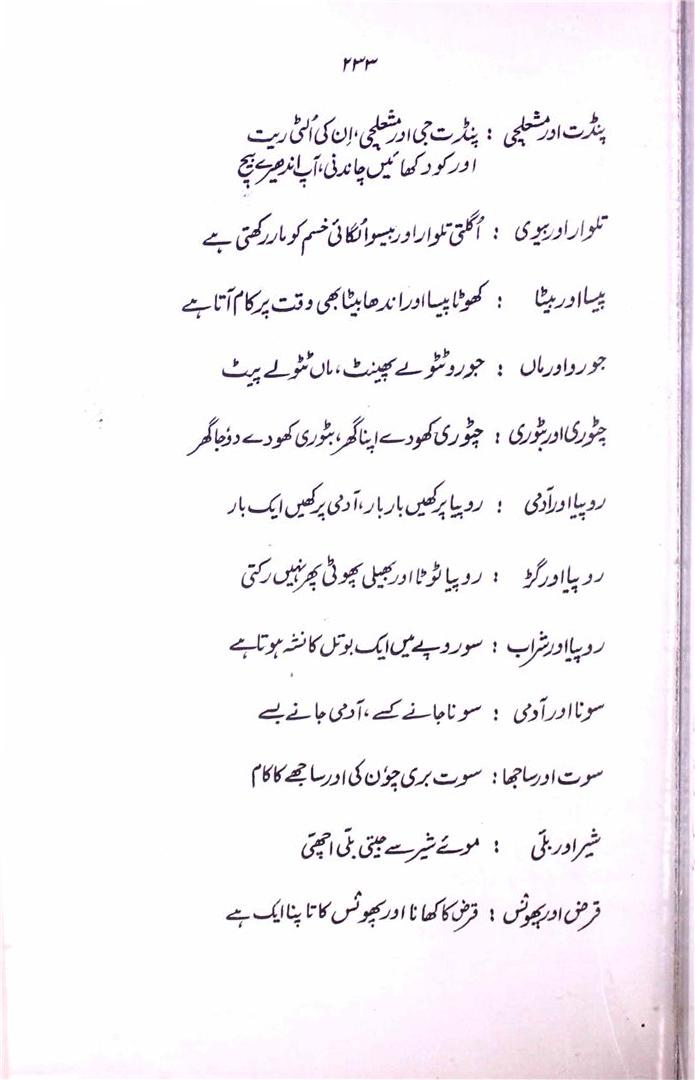 ۲۳۳
پنڈت اور مشعلچی : پنڈت جی اور مشعلچی، اِن کی اُلٹی ریت
اور کو دکھائیں چاندنی، آپ اندھیرے بیچ
تلوار اور بیوی : اُگلتی تلوار اور بیسوا لُگائی خسم کو مار رکھتی ہے
پیسا اور بیٹا : کھوٹا پیسا اور اندھا بیٹا بھی وقت پر کام آتا ہے
جورو اور ماں : جورو ٹٹولے پھینٹ، ماں ٹٹولے پیٹ
چٹوری اور بٹوری : چٹوری کھودے اپنا گھر، بٹوری کھودے دوُجا گھر
روپیا اور آدمی : روپیا پرکھیں بار بار، آدمی پرکھیں ایک بار
روپیا اور گڑ : روپیا ٹوٹا اور بھیلی پھوٹی پھر نہیں رکتی
روپیا اور شراب : سو روپے میں ایک بوتل کا نشہ ہوتا ہے
سونا اور آدمی : سونا جانے کسے، آدمی جانے بسے
سوت اور ساجھا : سوت بری چوُن کی اور ساجھے کا کام
شیر اور بلّی : موئے شیر سے جیتی بلّی اچھّی
قرض اور پھونس : قرض کا کھانا اور پھونس کا تاپنا ایک ہے